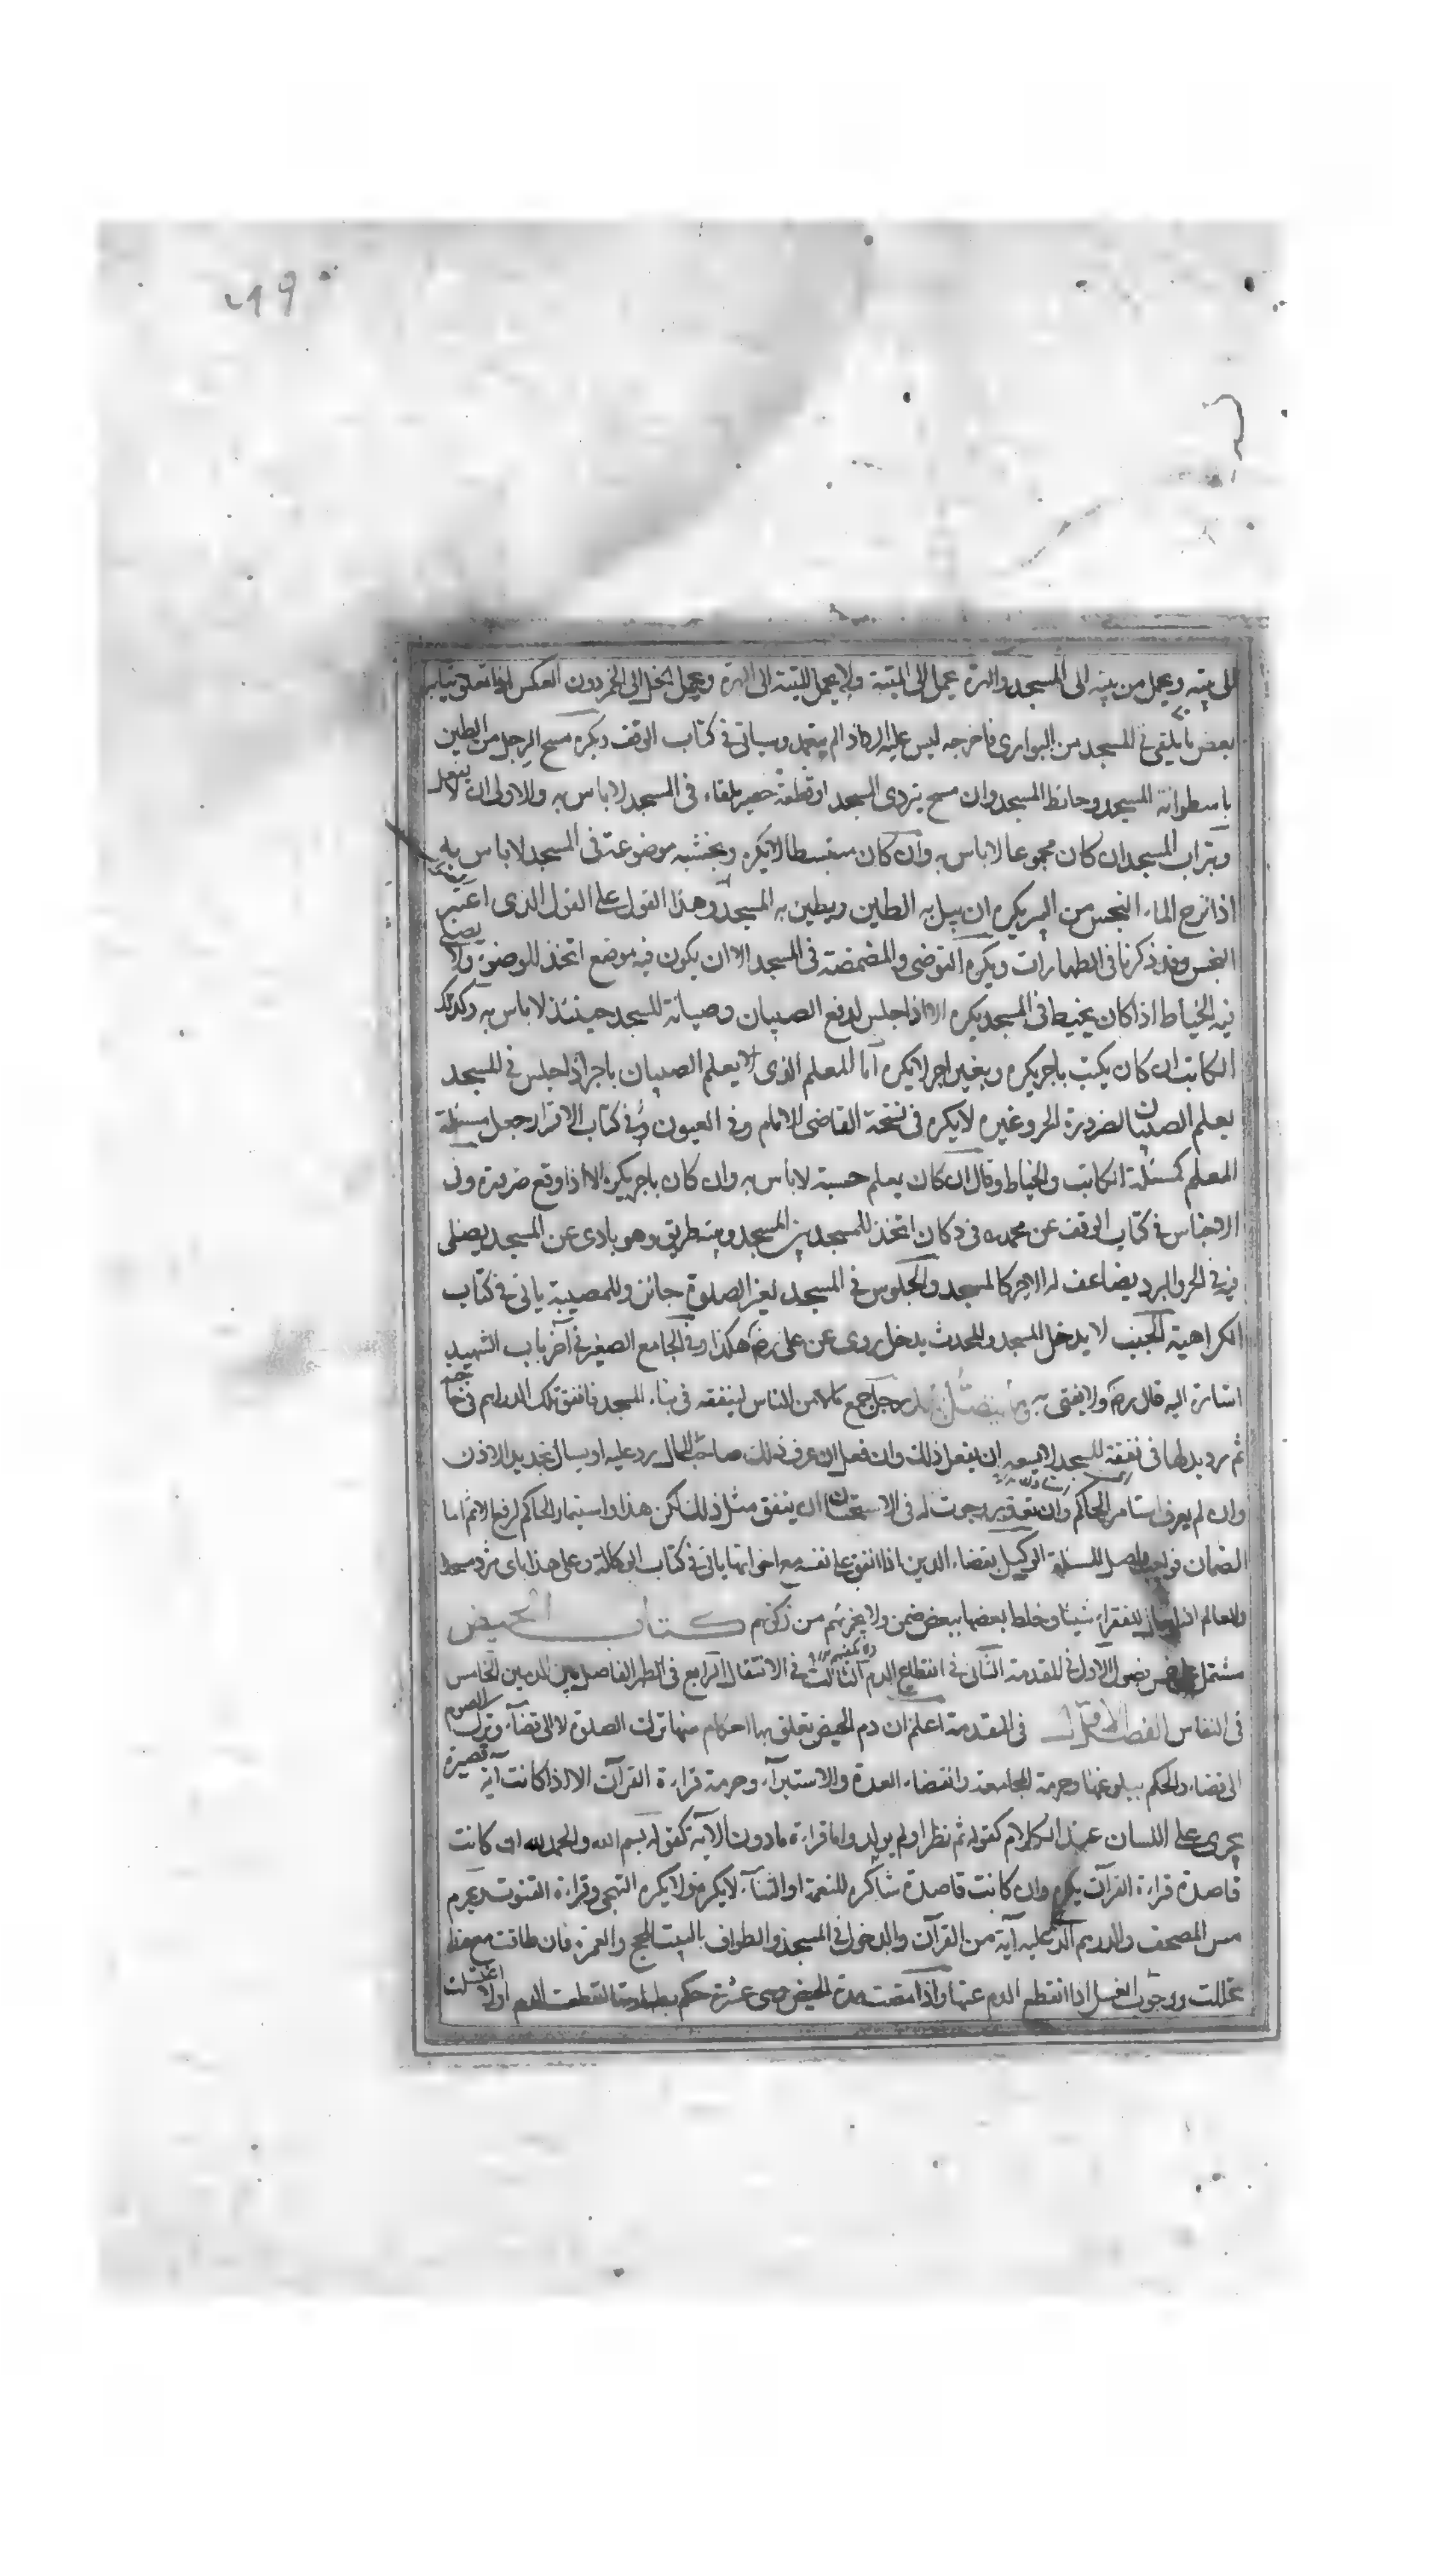 الى بيته ويحمل من بيته الى المسجد والهرة تحمل الى الميتة ولا يحمل الميتة الى الهرة ويحمل الخل الى الخمر دون العكس اذا تعلق بثياب
بعض ما يلقى فى المسجد من البوارى فاخرجه ليس عليه الرد اذا لم يتعمد وسياتى فى كتاب الوقف ويكره مسح الرجل من الطين
باسطوانة المسجد وحائط المسجد وان مسح ببردى المسجد او قطعة حصير ملقاة فى المسجد لا باس به والاولى ان لا يفعل
وبتراب المسجد ان كان مجموعا لا باس به وان كان منبسطا لا يكره وبخشبة موضوعة فى المسجد لا باس به
اذا نزح الماء النجس من البير يكره ان يبل به الطين ويطين به المسجد وهذا القول على القول الذى اعتبر
النجس وقد ذكرنا فى الطهارات ويكره التوضى والمضمضة فى المسجد الا ان يكون فيه موضع اتخذ للوضوء ولا يصلى
فيه الخياط اذا كان يخيط فى المسجد يكره الا اذا جلس لدفع الصبيان وصيانة المسجد حينئذ لا باس به وكذلك
الكاتب ان كان يكتب باجر يكره وبغير اجر لا يكره اما المعلم الذى يعلم الصبيان باجر اذا جلس فى المسجد
يعلم الصبيان لضرورة الحر وغيره لا يكره فى نسخة القاضى الامام وفى العيون وفى كتاب الاقرار جعل مسئلة
المعلم كمسئلة الكاتب والخياط وقال ان كان يعلم حسبة لا باس به وان كان باجر يكره الا اذا وقع ضرورة وفى
الاجناس فى كتاب الوقف عن محمد فى دكان اتخذ للمسجد بين المسجد وبينه طريق وهو بادى عن المسجد يصلى
فيه فى الحر والبرد يضاعف له الاجر كالمسجد والجلوس فى المسجد لغير الصلوة جائز وللمصيبة ياتى فى كتاب
الكراهية الجنب لا يدخل المسجد والمحدث يدخل روى عن على رض هكذا وفى الجامع الصغير فى آخر باب الشهيد
اشارة اليه قال رض ولا يفتى به رجل جمع مالا من الناس لينفقه فى بناء المسجد فانفق تلك الدراهم فى حاجته
ثم رد بدلها فى نفقة المسجد لا يسعه ان يفعل ذلك وان فعل ان عرف ذلك صاحب المال رد عليه او يسال تجديد الاذن
وان لم يعرف استامر الحاكم وان تعذر رجوت له فى الاستحسان ان ينفق مثل ذلك لكن هذا واستيمار الحاكم لرفع الاثم اما
الضمان فواجب واصل المسئلة الوكيل بقضاء الدين اذا انفق على نفسه مع اخواتها ياتى فى كتاب الوكالة وعلى هذا
والعالم اذا سال للفقراء شيئا وخلط بعضها ببعض ضمن ولا يجزئهم من زكوتهم كتاب الحيض
مشتمل على خمس فصول الاول فى المقدمة الثانى فى انقطاع الدم الثالث فى الانتقال الرابع فى الطهر الفاصل بين الدمين الخامس
فى النفاس الفصل الاول فى المقدمة اعلم ان دم الحيض تعلق بها احكام منها ترك الصلوة لا الى قضاء وترك الصوم
الى قضاء والحكم ببلوغها وحرمة المجامعة وانقضاء العدة والاستبراء وحرمة قراءة القرآن الا اذا كانت آية قصيرة
يجرى على اللسان عند الكلام كقوله ثم نظر او لم يولد واما قراءة ما دون الآية كقوله بسم الله والحمد لله ان كانت
قاصدة قراءة القرآن يكره وان كانت قاصدة شاكرة للنعمة او الثناء لا يكره ولا يكره التهجى وقراءة القنوت ويحرم
مس المصحف والدرهم الذى عليه آية من القرآن والدخول فى المسجد والطواف بالبيت للحج والعمرة فان طافت مع هذا
تحللت ووجوب الغسل اذا انقطع الدم عنها واذا مضت مدة الحيض وهى عشرة حكم بطهارتها انقطعت الدم اولا اغتسلت